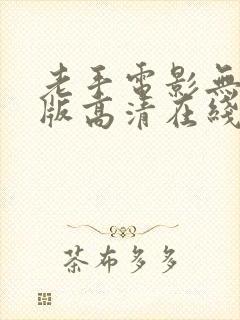 老手電影無
版高清在綫
茶布多多